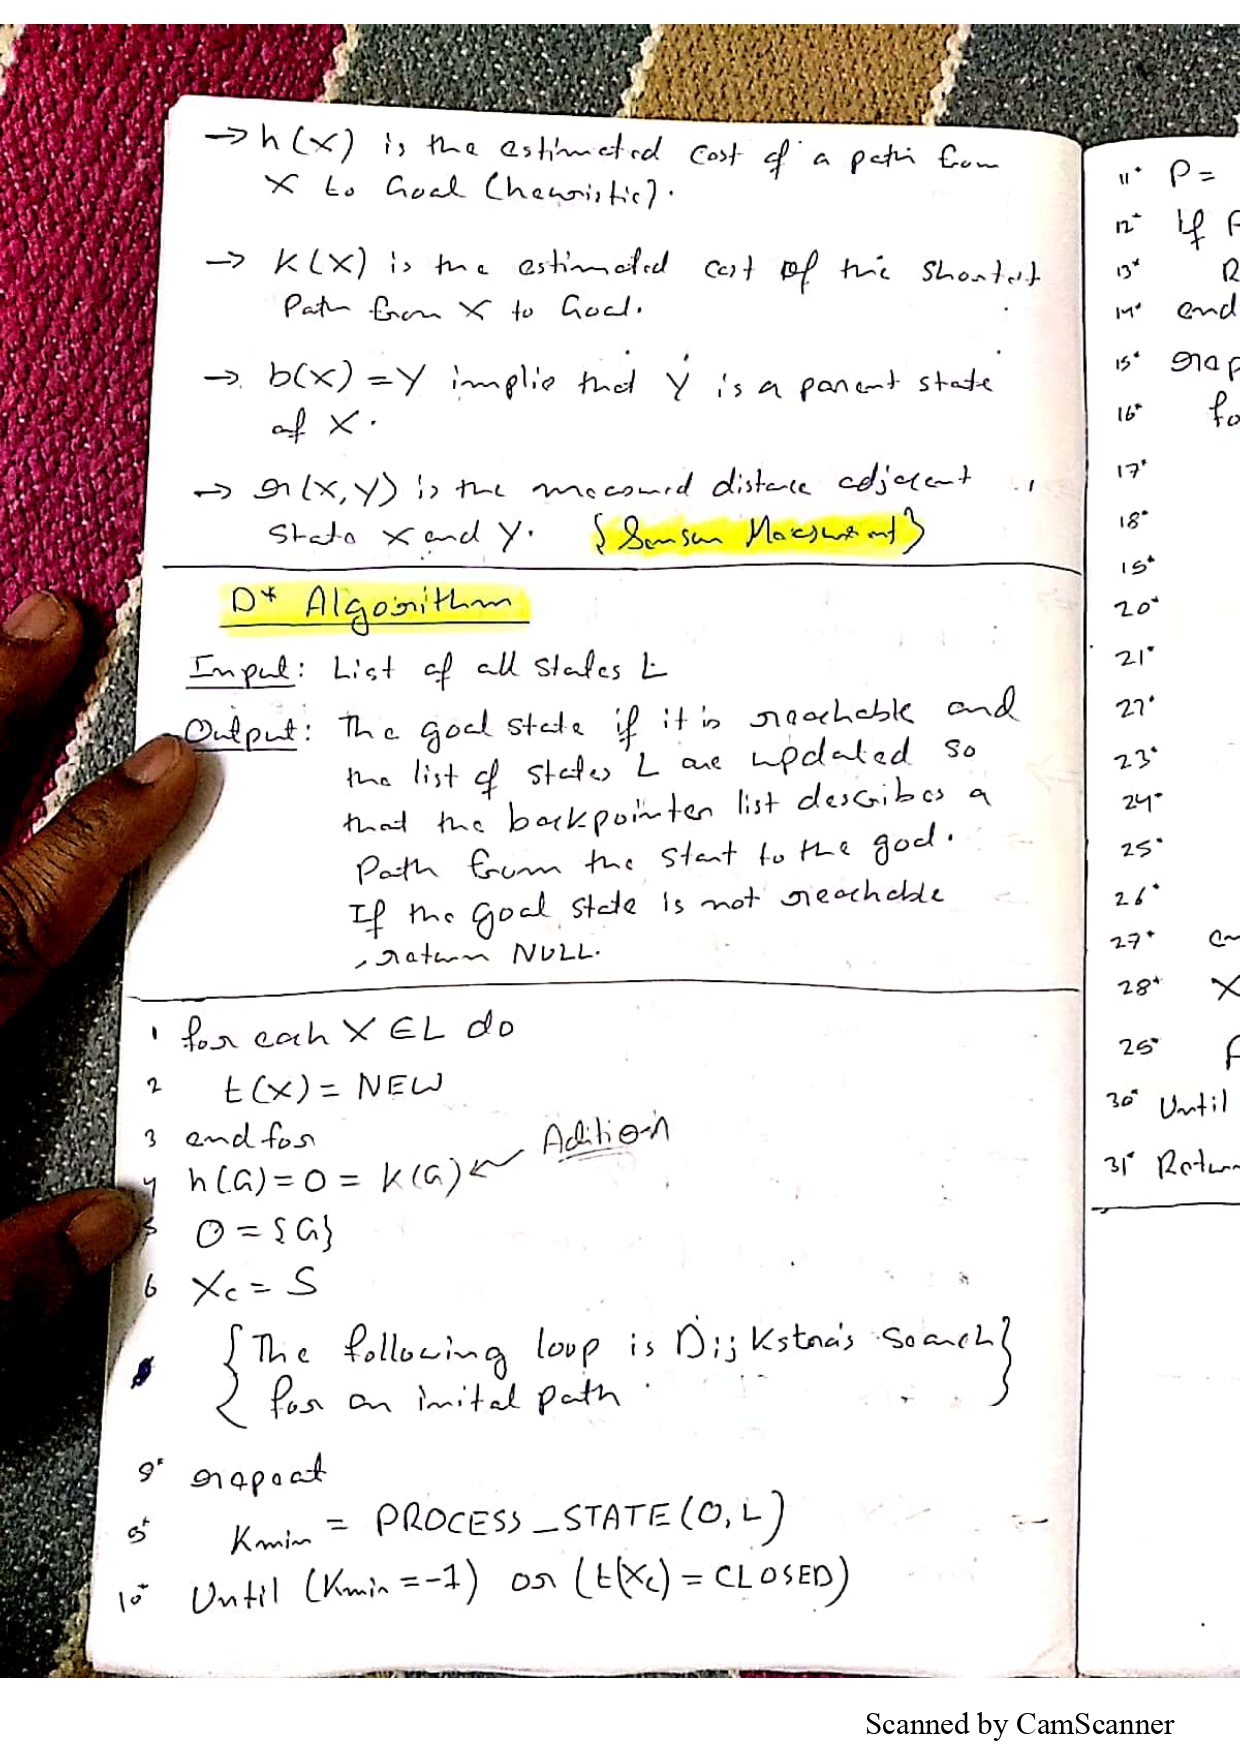 → h(X) is the estimated cost of a path from
X to Goal (heuristic).
→ k(X) is the estimated cost of the shortest
Path from X to Goal.
→ b(X) = Y implie that Y is a parent state
of X.
→ r(X,Y) is the measured distance adjacent
State X and Y. {Sensor Measurement}
D* Algorithm
Input: List of all states L
Output: The goal state if it is reachable and
the list of states L are updated so
that the backpointer list describes a
Path from the start to the goal.
If the goal state is not reachable
, return NULL.
1 for each X ∈ L do
2 t(X) = NEW
3 end for
4 h(G) = 0 = k(G) ← Adition
5 O = {G}
6 Xc = S
{The following loop is Dijkstra's search}
for an inital path
9* repeat
9* Kmin = PROCESS_STATE(O, L)
10* Until (Kmin = -1) or (t(Xc) = CLOSED)
11* P =
12* If
13* R
14* end
15* rep
16* fo
17*
18*
19*
20*
21*
22*
23*
24*
25*
26*
27*
28* X
29*
30* Until
31* Return
Scanned by CamScanner